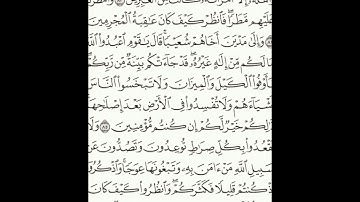 وَأَهْلَهُۥٓ إِلَّا ٱمْرَأَتَهُۥ كَانَتْ مِنَ ٱلْغَٰبِرِينَ
عَلَيْهِم مَّطَرًا ۖ فَٱنظُرْ كَيْفَ كَانَ عَٰقِبَةُ ٱلْمُجْرِمِينَ
وَإِلَىٰ مَدْيَنَ أَخَاهُمْ شُعَيْبًا ۗ قَالَ يَٰقَوْمِ ٱعْبُدُوا۟ ٱللَّهَ
مَا لَكُم مِّنْ إِلَٰهٍ غَيْرُهُۥ ۖ قَدْ جَآءَتْكُم بَيِّنَةٌ مِّن رَّبِّكُمْ
فَأَوْفُوا۟ ٱلْكَيْلَ وَٱلْمِيزَانَ وَلَا تَبْخَسُوا۟ ٱلنَّاسَ
أَشْيَآءَهُمْ وَلَا تُفْسِدُوا۟ فِى ٱلْأَرْضِ بَعْدَ إِصْلَٰحِهَا
ذَٰلِكُمْ خَيْرٌ لَّكُمْ إِن كُنتُم مُّؤْمِنِينَ ٨٥
تَقْعُدُوا۟ بِكُلِّ صِرَٰطٍ تُوعِدُونَ وَتَصُدُّونَ عَن
سَبِيلِ ٱللَّهِ مَنْ ءَامَنَ بِهِۦ وَتَبْغُونَهَا عِوَجًا ۚ وَٱذْكُرُوٓا۟
إِذْ كُنتُمْ قَلِيلًا فَكَثَّرَكُمْ ۖ وَٱنظُرُوا۟ كَيْفَ كَانَ